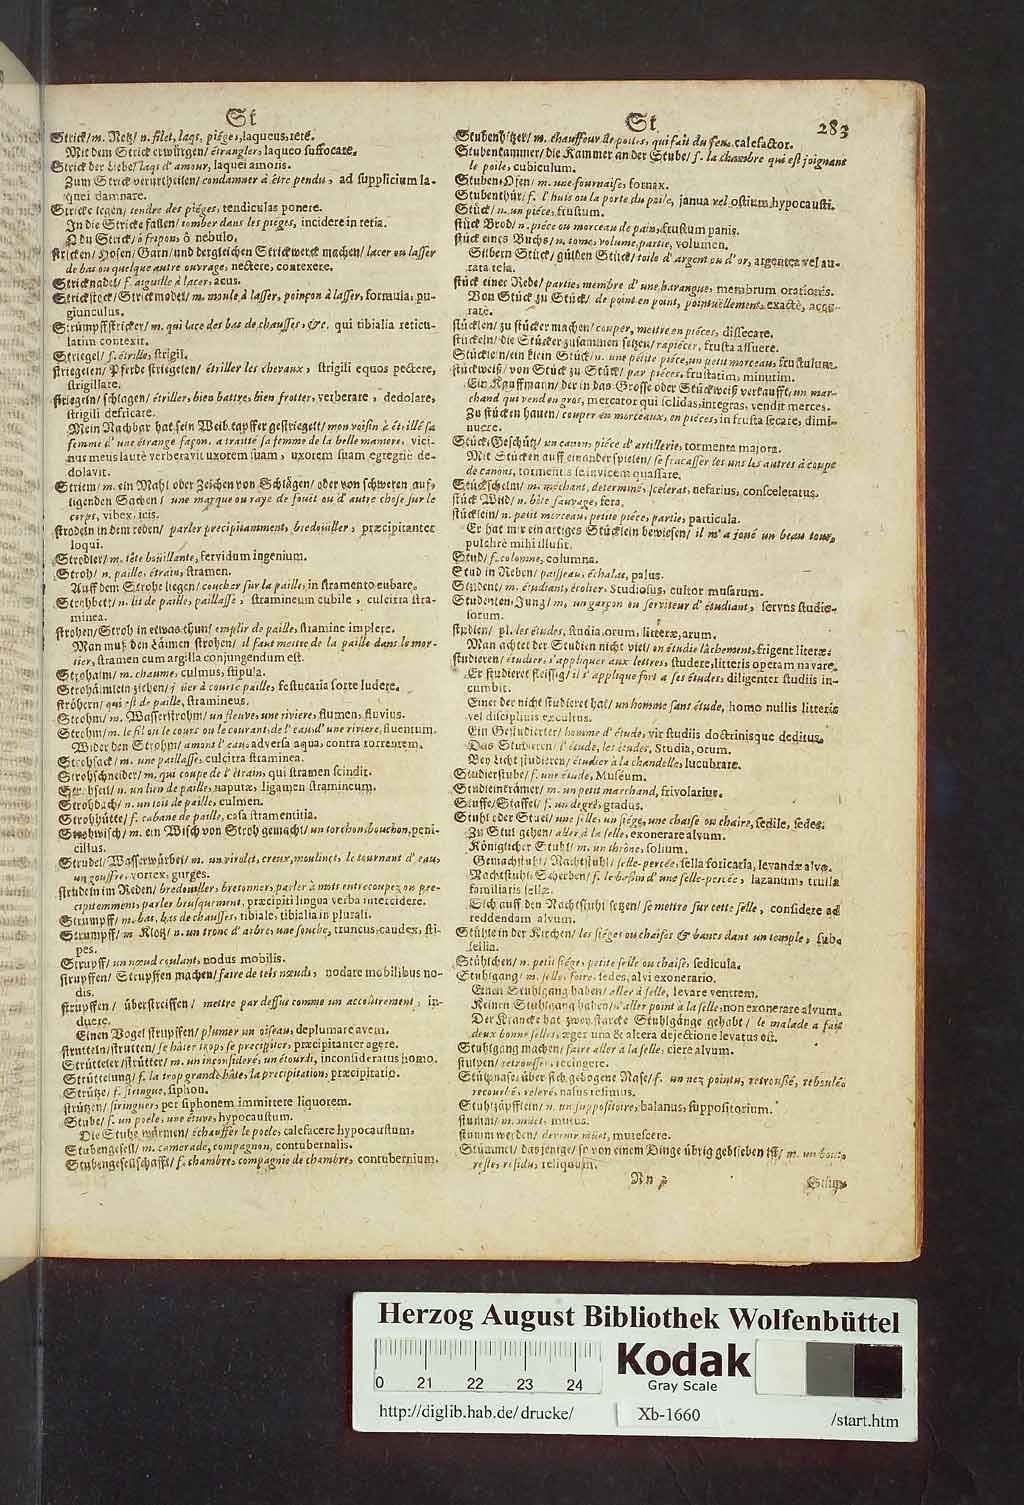 St
Strick/ m. Netz/ n. filet, laqs, piége, laqueus, rete.
Mit dem Strick erwürgen/ étrangler, laqueo suffocare.
Strick der Liebe/ laqs d'amour, laquei amoris.
Zum Strick verurtheilen/ condamner à être pendu, ad supplicium la-
quei damnare.
Stricke legen/ tendre des piéges, tendiculas ponere.
In die Stricke fallen/ tomber dans les pieges, incidere in retia.
O du Strick/ ô fripon, ô nebulo.
stricken/ Hosen/ Garn/ und dergleichen Strickwerck machen/ lacer ou lasser
de bas ou quelque autre ouvrage, nectere, contexere.
Stricknadel/ f. aiguille à lacer, acus.
Strickstock/ Strickmodel/ m. moule à lasser, poinçon à lasser, formula, pu-
giunculus.
Strümpffstricker/ m. qui lace des bas de chausses, &c. qui tibialia reticu-
latim contexit.
Striegel/ f. étrille, strigil.
striegelen/ Pferde striegelen/ étriller les chevaux, strigili equos pectere,
strigillare.
striegeln/ schlagen/ étriller, bien battre, bien frotter, verberare, dedolare,
strigili defricare.
Mein Nachbar hat sein Weib tapffer gestriegelt/ mon voisin à étrillé sa
femme d'une étrange façon, a traitté sa femme de la belle maniere, vici-
nus meus lautè verberavit uxorem suam, uxorem suam egregiè de-
dolavit.
Striem/ m. ein Mahl oder Zeichen von Schlägen/ oder von schweren auf-
ligenden Sachen/ une marque ou raye de foüet ou d'autre chose sur le
corps, vibex, icis.
strodeln in dem reden/ parler precipitamment, bredouiller, præcipitanter
loqui.
Strodler/ m. tête boüillante, fervidum ingenium.
Stroh/ n. paille, étrain, stramen.
Auff dem Strohe liegen/ coucher sur la paille, in stramento cubare.
Strohbett/ n. lit de paille, paillasse, stramineum cubile, culcitra stra-
minea.
strohen/ Stroh in etwas thun/ emplir de paille, stramine implere.
Man muß den Läimen strohen/ il faut mettre de la paille dans le mor-
tier, stramen cum argilla conjungendum est.
Strohalm/ m. chaume, culmus, stipula.
Strohälmlein ziehen/ joüer à courte paille, festucaria sorte ludere.
ströhern/ qui est de paille, stramineus.
Strohm/ m. Wasserstrohm/ un fleuve, une riviere, flumen, fluvius.
Strohm/ m. le fil ou le cours ou le courant, de l'eau d'une riviere, fluentum.
Wider den Strohm/ amont l'eau, adversa aqua, contra torrentem.
Strohsack/ m. une paillasse, culcitra straminea.
Strohschneider/ m. qui coupe de l'étrain, qui stramen scindit.
Strohseil/ n. un lien de paille, naputæ, ligamen stramineum.
Strohdach/ n. un toit de paille, culmen.
Strohhütte/ f. cabane de paille, casa stramentitia.
Strohwisch/ m. ein Wisch von Stroh gemacht/ un torchon, bouchon, peni-
cillus.
Strudel/ Wasserwürbel/ m. un virolet, creux, moulinet, le tournant d'eau,
un gouffre, vortex, gurges.
strudeln im Reden/ bredouiller, bretonner, parler à mots entrecoupez ou pre-
cipitemment, parler brusquement, præcipiti lingua verba intercidere.
Strumpff/ m. bas, bas de chausses, tibiale, tibialia in plurali.
Strumpff/ m. Klotz/ n. un tronc d'arbre, une souche, truncus, caudex, sti-
pes.
Strupff/ un nœud coulant, nodus mobilis.
strupffen/ Strupffen machen/ faire de tels nœuds, nodare mobilibus no-
dis.
strupffen/ überstreiffen/ mettre par dessus comme un accoûtrement, in-
duere.
Einen Vogel strupffen/ plumer un oiseau, deplumare avem.
strutteln/ strutten/ se hâter trop, se precipiter, præcipitanter agere.
Strütteler/ strütter/ m. un inconsideré, un étourdi, inconsideratus homo.
Strüttelung/ f. la trop grande hâte, la precipitation, præcipitatio.
Strütze/ f. siringue, siphon.
strützen/ siringuer, per siphonem immittere liquorem.
Stube/ f. un poele, une étuve, hypocaustum.
Die Stube wärmen/ échauffer le poele, calefacere hypocaustum.
Stubengesell/ m. camerade, compagnon, contubernalis.
Stubengesellschafft/ f. chambre, compagnie de chambre, contubernium.
St 283
Stubenhitzer/ m. chauffeur de poiles, qui fait du feu, calefactor.
Stubenkammer/ die Kammer an der Stube/ f. la chambre qui est joignant
le poile, cubiculum.
Stuben-Ofen/ m. une fournaise, fornax.
Stubenthür/ f. l'huis ou la porte du poile, janua vel ostium hypocausti.
Stück/ n. un piéce, frustum.
stück Brod/ n. piéce ou morceau de pain, frustum panis.
stück eines Buchs/ n. tome, volume, partie, volumen.
Silbern Stück/ gülden Stück/ toile d'argent ou d'or, argentea vel au-
rata tela.
stück einer Rede/ partie, membre d'une harangue, membrum orationis.
Von Stück zu Stück/ de point en point, pointuellement, exactè, accu-
ratè.
stücklen/ zu stücker machen/ couper, mettre en piéces, dissecare.
stückeln/ die Stücker zusammen setzen/ rapiécer, frusta assuere.
Stücklein/ ein klein Stück/ n. une petite piéce, un petit morceau, frustulum.
stückweiß/ von Stück zu Stück/ par piéces, frustatim, minutim.
Ein Kauffmann/ der in das Grosse oder Stückweiß verkaufft/ un mar-
chand qui vend en gros, mercator qui solidas, integras, vendit merces.
Zu stücken hauen/ couper en morceaux, en piéces, in frusta secare, dimi-
nuere.
Stück/ Geschütz/ un canon, piéce d'artillerie, tormenta majora.
Mit Stücken auff einander spielen/ se fracasser les uns les autres à coups
de canons, tormentis se invicem quassare.
Stückschelm/ m. méchant, determiné, scelerat, nefarius, consceleratus.
stück Wild/ n. bête sauvage, fera.
stücklein/ n. petit morceau, petite piéce, partie, particula.
Er hat mir ein artiges Stücklein bewiesen/ il m'a joüé un beau tour,
pulchrè mihi illusit.
Stud/ f. colomne, columna.
Stud in Reben/ paisseau, échalat, palus.
Student/ m. étudiant, écolier, Studiosus, cultor musarum.
Studenten-Jung/ m. un garçon ou serviteur d'étudiant, servus studio-
sorum.
studien/ pl. les études, studia, orum, litteræ, arum.
Man achtet der Studien nicht viel/ on étudie lâchement, frigent literæ.
studieren/ étudier, s'appliquer aux lettres, studere, litteris operam navare.
Er studieret fleissig/ il s'applique fort a ses études, diligenter studiis in-
cumbit.
Einer der nicht studieret hat/ un homme sans étude, homo nullis litteris
vel disciplinis excultus.
Ein Gestudierter/ homme d'étude, vir studiis doctrinisque deditus.
Das Studieren/ l'étude, les études, Studia, orum.
Bey Licht studieren/ étudier à la chandelle, lucubrare.
Studierstube/ f. une étude, Muséum.
Studelnkrämer/ m. un petit marchand, frivolarius.
Stuffe/ Staffel/ f. un degré, gradus.
Stuhl oder Stuel/ une selle, un siége, une chaise ou chaire, sedile, sedes.
Zu Stul gehen/ aller à la selle, exonerare alvum.
Königlicher Stuhl/ m. un thrône, solium.
Gemachstuhl/ Nachtstuhl/ selle-percée, sella foricaria, levandæ alvo.
Nachtstuhls Scherben/ f. le bassin d'une selle-percée, lazanum, trulla
familiaris sellæ.
Sich auff den Nachtstuhl setzen/ se mettre sur cette selle, considere ad
reddendam alvum.
Stühle in der Kirchen/ les siéges ou chaises & bancs dans un temple, sub-
sellia.
Stühlchen/ n. petit siége, petite selle ou chaise, sedicula.
Stuhlgang/ m. selle, foire, sedes, alvi exonerario.
Einen Stuhlgang haben/ aller à selle, levare ventrem.
Keinen Stuhlgang haben/ n'aller point à la selle, non exonerare alvum.
Der Krancke hat zwey starcke Stuhlgänge gehabt/ le malade a fait
deux bonne selles, æger una & altera dejectione levatus est.
Stuhlgang machen/ faire aller à la selle, ciere alvum.
stulpen/ retrousser, recingere.
Stülpnase, über sich gebogene Nase/ f. un nez pointu, retroussé, reboulé,
recourbé, relevé, nasus resimus.
Stuhlzäpfflein/ n. un suppositoire, balanus, suppositorium.
stumm/ m. müet, mutus.
stumm werden/ devenir müet, mutescere.
Stümmel/ dasjenige/ so von einem Dinge übrig geblieben ist/ m. un bout,
reste, residu, reliquum.
Nn 3 Stüm-
Herzog August Bibliothek Wolfenbüttel
0 21 22 23 24
Kodak
Gray Scale
http://diglib.hab.de/drucke/
Xb-1660
/start.htm